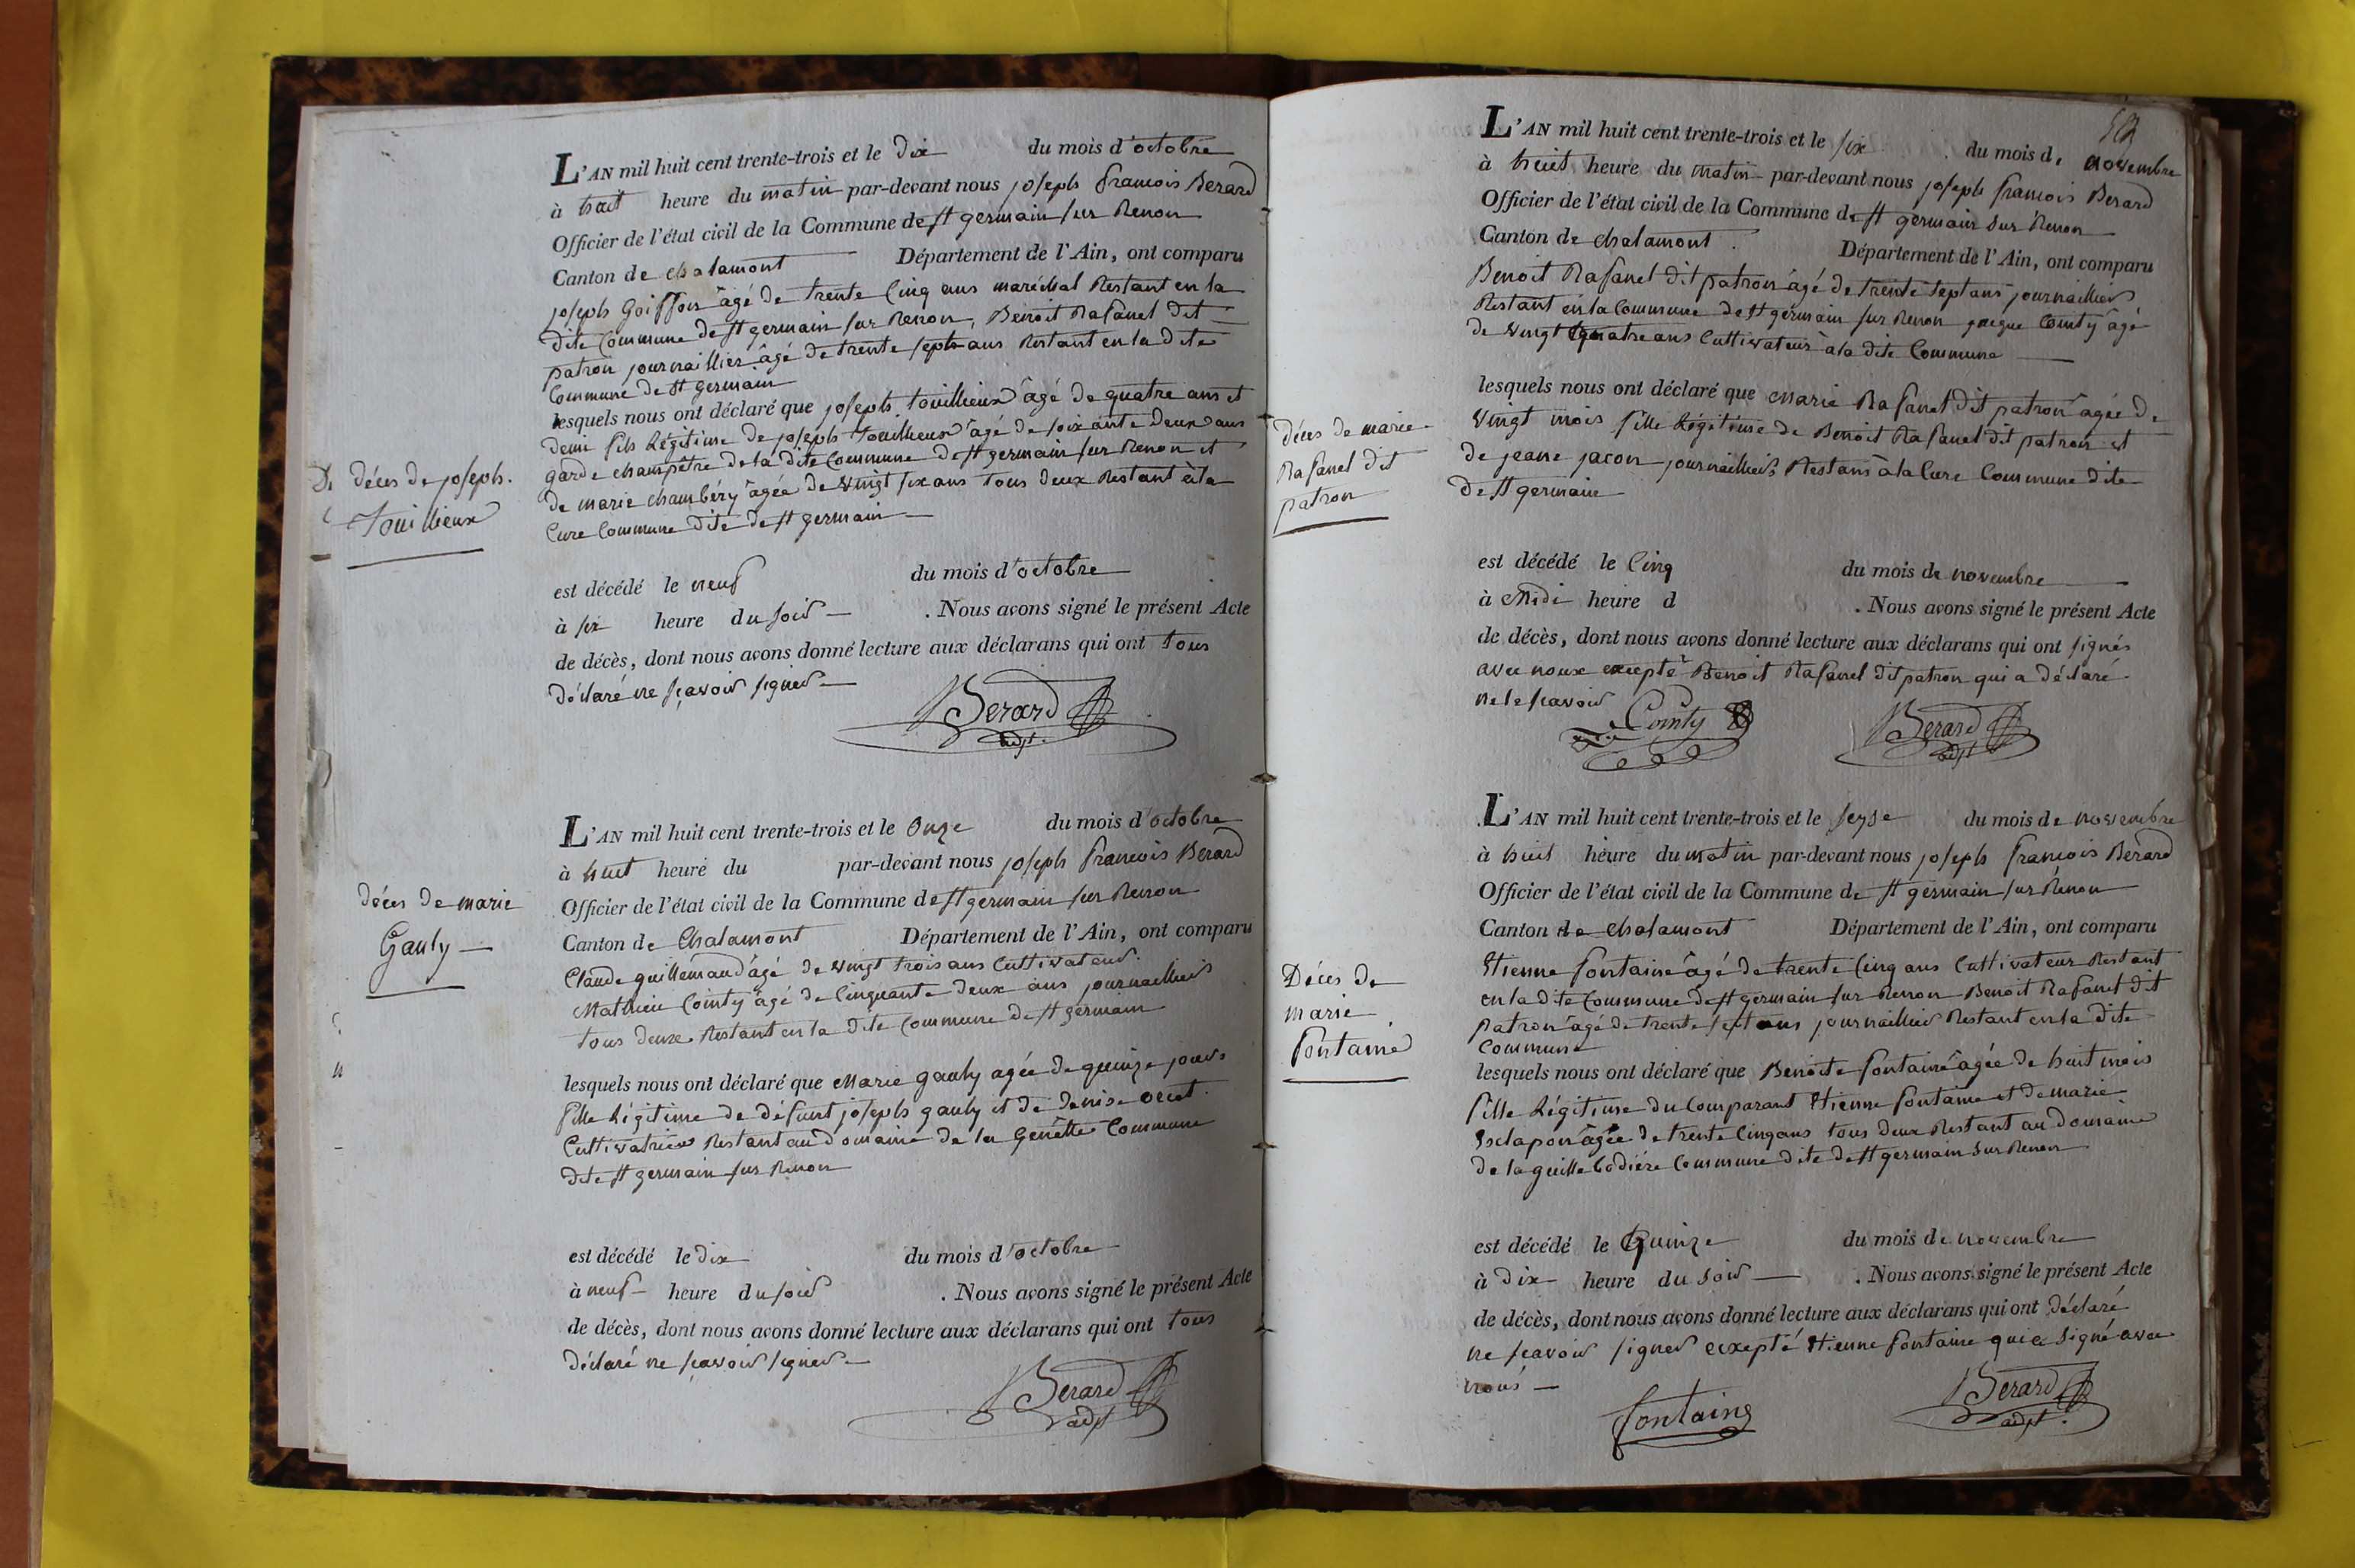 L'AN mil huit cent trente-trois et le dix du mois d'octobre
à huit heure du matin par-devant nous joseph francois Berard
Officier de l'état civil de la Commune de st germain sur Renon
Canton de chalamont Département de l'Ain, ont comparu
joseph Goiffon âgé de trente cinq ans maréchal Restant en la
dite Commune de st germain sur Renon, Benoit Rafanel dit
patron journaillier âgé de trente sept ans Restant en la dite
Commune de st germain
lesquels nous ont déclaré que joseph touillieux âgé de quatre ans et
demi fils Légitime de joseph touillieux âgé de soixante deux ans
garde champêtre de la dite Commune de st germain sur Renon et
de marie chambéry âgée de vingt six ans tous deux Restant à la
Cure Commune dite de st germain
décès de joseph
Touillieux
est décédé le neuf du mois d'octobre
à six heure du soir . Nous avons signé le présent Acte
de décès, dont nous avons donné lecture aux déclarans qui ont tous
déclaré ne sçavoir signer
Berard
adjt.
L'AN mil huit cent trente-trois et le onze du mois d'octobre
à huit heure du par-devant nous joseph francois Berard
Officier de l'état civil de la Commune de st germain sur Renon
Canton de Chalamont Département de l'Ain, ont comparu
Claude guillemaud âgé de vingt trois ans Cultivateur
Mathieu Cointy âgé de Cinquante deux ans journaillier
tous deux Restant en la dite Commune de st germain
décès de marie
Gauly
lesquels nous ont déclaré que Marie gauly agée de quinze jours
fille Légitime de défunt joseph gauly et de denise
Cultivatrice Restant au domaine de la Genette Commune
dite st germain sur Renon
est décédé le dix du mois d'octobre
à neuf heure du soir . Nous avons signé le présent Acte
de décès, dont nous avons donné lecture aux déclarans qui ont tous
déclaré ne sçavoir signer
Berard
adjt
L'AN mil huit cent trente-trois et le six du mois de novembre
à huit heure du matin par-devant nous joseph francois Berard
Officier de l'état civil de la Commune de st germain sur Renon
Canton de chalamont Département de l'Ain, ont comparu
Benoit Rafanel dit patron âgé de trente sept ans journaillier
Restant en la Commune de st germain sur Renon Cointy âgé
de vingt quatre ans Cultivateur à la dite Commune
lesquels nous ont déclaré que Marie Rafanel dit patron agée de
vingt mois fille Légitime de Benoit Rafanel dit patron et
de jeane jacon journailliers Restans à la Cure Commune dite
de st germain
décès de marie
Rafanel dit
patron
est décédé le Cinq du mois de novembre
à Midi heure d . Nous avons signé le présent Acte
de décès, dont nous avons donné lecture aux déclarans qui ont signés
avec noux excepté Benoit Rafanel dit patron qui a déclaré
ne le scavoir
Cointy
Berard
adjt
L'AN mil huit cent trente-trois et le seyse du mois de novembre
à huit heure du matin par-devant nous joseph francois Berard
Officier de l'état civil de la Commune de st germain sur Renon
Canton de chalamont Département de l'Ain, ont comparu
Etienne fontaine âgé de trente Cinq ans Cultivateur Restant
en la dite Commune de st germain sur Renon Benoit Rafanel dit
patron agé de trente sept ans journaillier Restant en la dite
Commune
lesquels nous ont déclaré que Benoite fontaine âgée de huit mois
fille Légitime du Comparant Etienne fontaine et de marie
agée de trente Cinq ans tous deux Restant au domaine
de la Commune dite de st germain sur Renon
Décès de
marie
fontaine
est décédé le Quinze du mois de novembre
à dix heure du soir . Nous avons signé le présent Acte
de décès, dont nous avons donné lecture aux déclarans qui ont déclaré
ne scavoir signer excepté Etienne fontaine qui a signé avec
nous
fontaine
Berard
adjt.